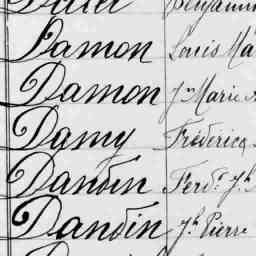 Damon Louis Ma
Damon Jn Marie
Damy Frédéricq
Dandin Ferdt Jh
Dandin Jh Pierre